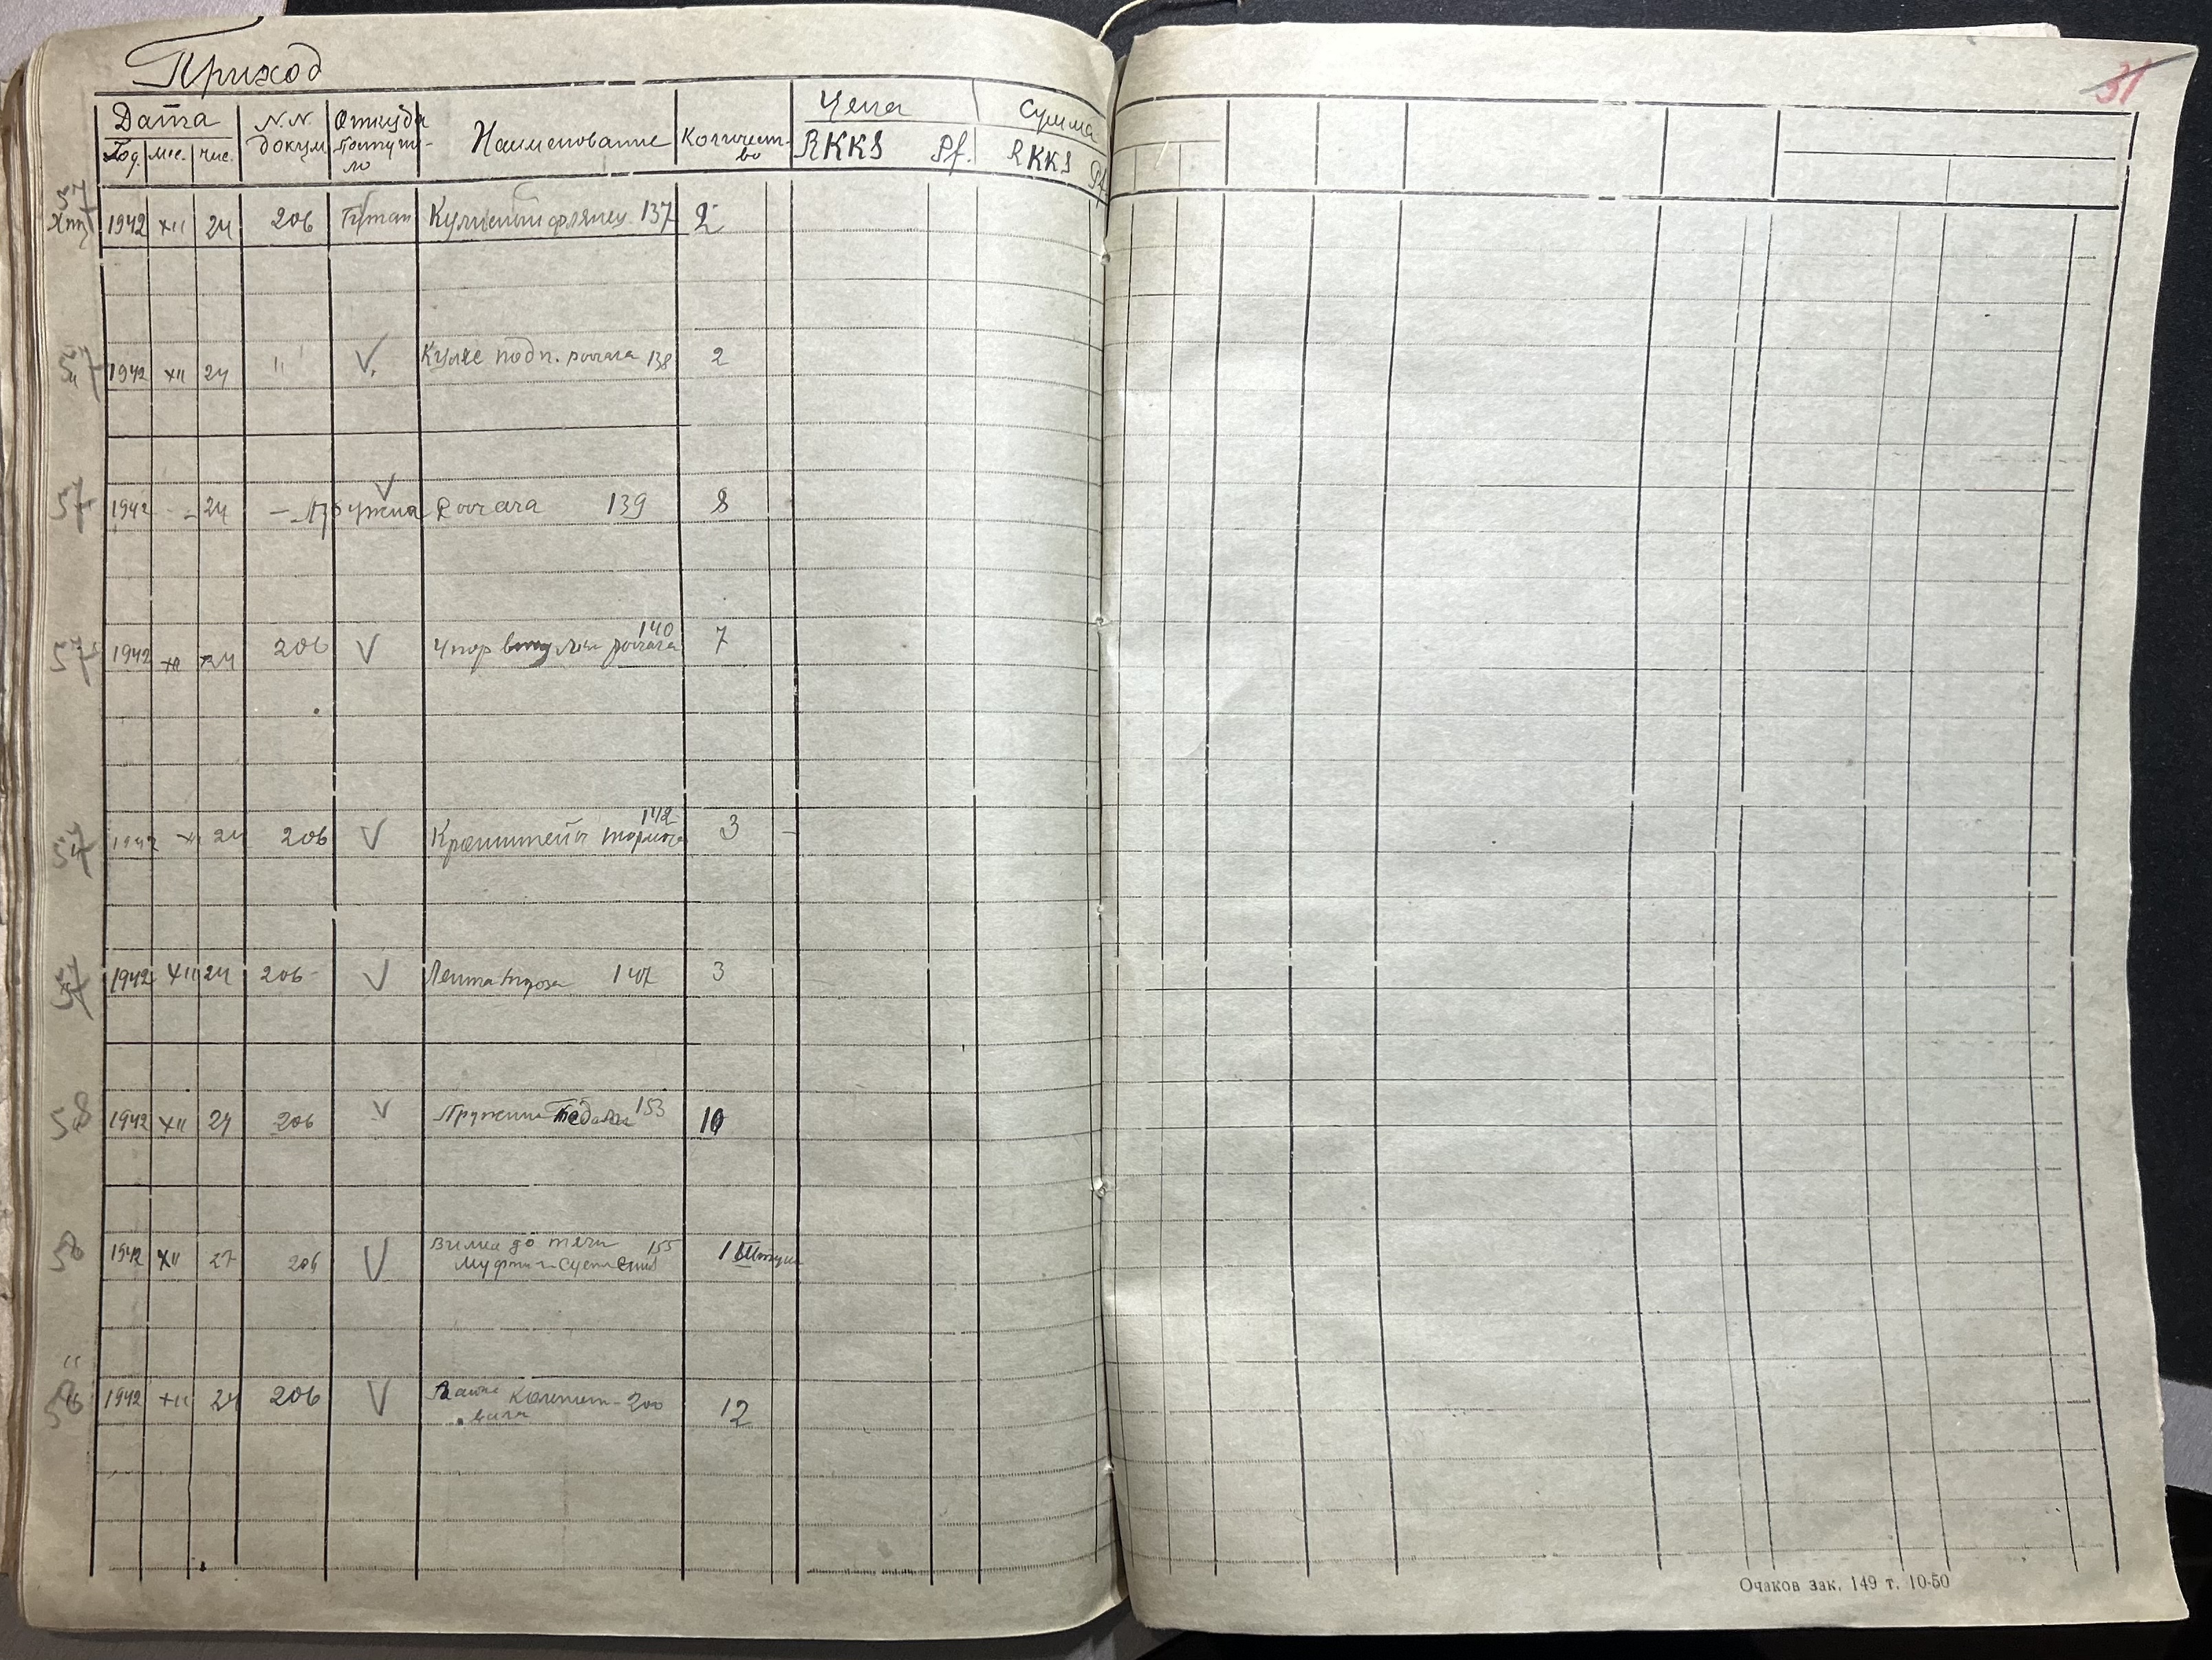 Приход
31
Дата N.N. докум Откуда поступи-ло Наименование Количест-во Цена Сумма
Год мес. чис. RKKS Pf. RKKS Pf.
57
1942 XII 24 206 фланец 137 2
57 1942 XII 24 " V Кулис подп. рычага 138 2
57 1942 - - 24 - Пружина V рычага 139 8
57 1942 XII 24 206 V Упор втулки рычага 140 7
57 1942 XII 24 206 V Кронштейн тормоза 142 3
57 1942 XII 24 206 V Лента 147 3
58 1942 XII 24 206 V Пружина Педали 153 10
58 1942 XII 27 206 V Вилка до тяги 155 1 Штука
муфти сцепления
58 1942 XII 24 206 V 200 12
Очаков зак. 149 т. 10-50